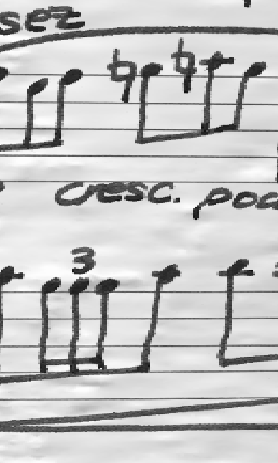 sez
cresc. poc
3